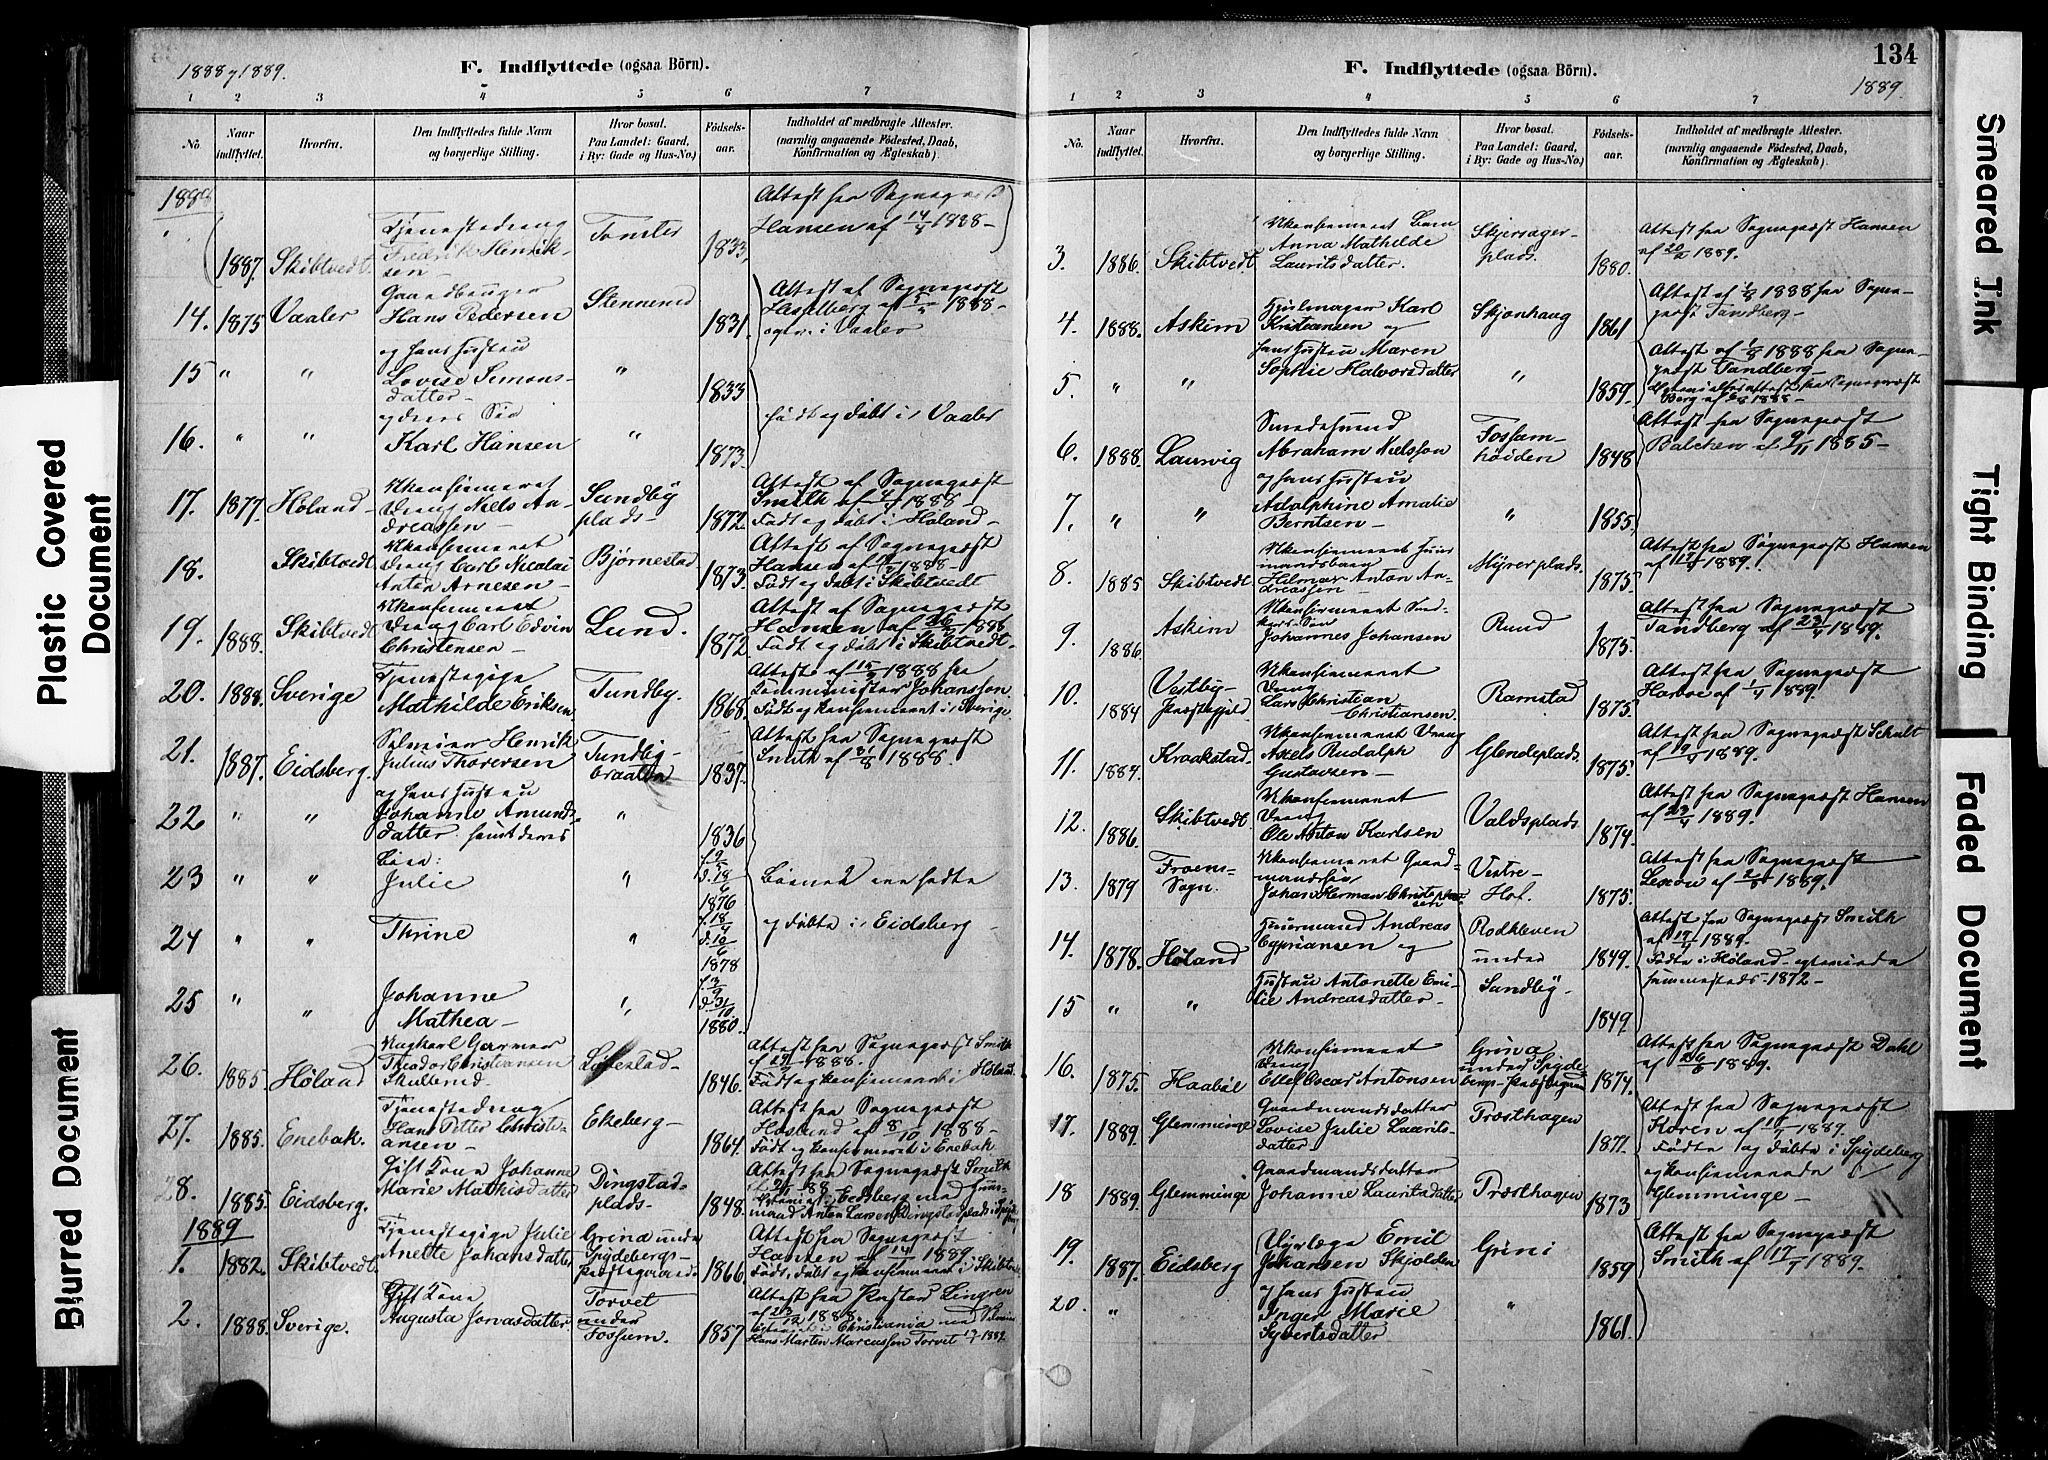 1888 & 1889.
F. Indflyttede (ogsaa Börn).
1 2 3 4 5 6 7
No
Naar indflyttet.
Hvorfra.
Den Indflyttedes fulde Navn
og borgerlige Stilling.
Hvor bosat.
Paa Landet: Gaard,
i By: Gade og Hus-No.)
Födsels-
aar.
Indholdet af medbragte Attester.
(navnlig angaaende Födested, Daab,
Konfirmation og Ægteskab).
1888
1887. Skibtvedt.
Tjenestedreng
Fredrik Henrik-
sen
Tomter
1833
Attest fra Sogneprest
Hansen af 14/4 1888
14. 1875 Vaaler
Gaardbruger
Hans Pedersen
Stennerud
1831
Attest af Sogneprest
Hesselberg af 1888
15 " "
og hans Hustru
Lovise Simons-
datter
"
1833
16. " "
og deres Søn
Karl Hansen
"
1873
Født og døbt i Vaaler
17. 1877. Høland
Ukonfirmeret
Dreng Niels An-
dreassen
Sundby
plads
1872
Attest af Sogneprest
Smith af 4/4 1888
Født og døbt i Høland
18. Skibtvedt
Ukonfirmeret
Dreng Carl Nicolai
Anton Arnesen
Bjørnestad
1873
Attest af Sogneprest
Hansen af 1888
Født og døbt i Skibtvedt
19. 1888. Skibtvedt
Ukonfirmeret
Dreng Carl Edvin
Christensen
Lund.
1872
Attest af Sogneprest
Hansen af 1888
Født og døbt i Skibtvedt
20. 1888. Sverige
Tjenestepige
Mathilde Eriksen
Tundby.
1868
Attest af 15/5 1888 fra
Komminister Johansson
Født og konfirmeret i Sverige.
21. 1887. Eidsberg.
Selveier Henrik
Julius Thoresen
Tundby-
braaten
1837.
Attest af Sogneprest
Smith af 31/8 1888.
22 " "
og hans Hustru
Johanne Amunds-
datter samt deres
"
1836
23 " "
Børn:
Julie
"
1876
Børnene ere fødte
24 " "
Thrine
"
1878
og døbte i Eidsberg
25 " "
Johanne
Mathea
"
1880.
26. 1885 Høland
Theodor Christiansen
Skullerud
1846.
Attest fra Sogneprest Smith
1888.
Født og konfirmeret i Høland.
27. 1885. Enebak.
Tjenestedreng
Hans Petter Christi-
ansen
Ekeberg
1864.
Attest fra Sogneprest
Høslund af 8/10 1888
Født og konfirmeret i Enebak
28. 1885. Eidsberg.
Gift Kone Johanne
Marie Mathisdatter
Dingstad-
plads
1848.
Attest fra Sogneprest Smith
88.
1889
1. 1882. Skibtvedt
Tjenestepige Julie
Anette Johansdatter
Grina under
Spydebergs
præstegaard
1866
Attest fra Sogneprest
Hansen af 1889.
Født, døbt og konfirmeret i Skibtvedt
2. 1888. Sverige.
Gift Kone
Augusta Jonasdatter
Torvet
under
Fossum.
1857
Attest fra Pastor Lingren
af 23/12 1888
i Christiania med
Hans Marten Marcussen Torvet
134
1889.
F. Indflyttede (ogsaa Börn).
1 2 3 4 5 6 7
No.
Naar indflyttet.
Hvorfra.
Den Indflyttedes fulde Navn
og borgerlige Stilling.
Hvor bosat.
Paa Landet: Gaard,
i By: Gade og Hus-No.)
Födsels-
aar.
Indholdet af medbragte Attester.
(navnlig angaaende Födested, Daab,
Konfirmation og Ægteskab).
3. 1886. Skibtvedt
Ukonfirmeret Barn
Anna Mathilde
Lauritsdatter.
Skjersager-
plads.
1880.
Attest fra Sogneprest Hansen
af 20/2 1889.
4. 1888. Askim
Hjulmager Karl
Kristiansen og
Skjønhaug
1861
Attest af 1/8 1888 fra Sogne-
prest Tandberg
5. " "
hans Hustru Maren
Sophie Halvorsdatter
"
1859.
Attest af 1/8 1888 fra Sogne-
prest Tandberg
6. 1888. Laurvig
Smedesvend
Abraham Nielsson
Fossum-
høiden
1848
Attest fra Sogneprest
Balchen af 9/11 1885
7. " "
og hans Hustru
Adolphine Amalie
Berntsen
"
1855.
8. 1885 Skibtvedt
Ukonfirmeret Huus
mandsbarn
Hilmar Anton An-
dreassen
Myrerplads.
1875
Attest fra Sogneprest Hansen
af 17/4 1889.
9. 1886. Askim
Ukonfirmeret
Johannes Johansen
Ruud
1875.
Attest fra Sogneprest
Tandberg af 23/4 1889.
10. 1884 Vestby
Præstegjeld
Ukonfirmeret
Dreng
Lars Christian
Christiansen.
Ramstad
1875
Attest fra Sogneprest
Harboe af 1/4 1889.
11. 1884. Kraakstad.
Ukonfirmeret Dreng
Axels Rudolph
Gustavsen
Glendeplads.
1875
Attest fra Sogneprest Schult
af 9/4 1889.
12. 1886. Skibtvedt.
Ukonfirmeret
Dreng
Ole Anton Karlsen
Valdsplads
1874.
Attest fra Sogneprest Hansen
af 23/4 1889.
13. 1879 Froens
Sogn.
Ukonfirmeret Gaard-
mandssøn
Johan Herman Christophersen
Vestre
Hof.
1875.
Attest fra Sogneprest
Lexow af 2/5 1889.
14. 1878. Høland
Huusmand Andreas
Cypriansen og
Rodkleven
under
1849.
Attest fra Sogneprest Smith
af 1889.
Fødte i Høland
sammesteds 1872
15 " "
Hustru Antonette Emi-
lie Andreasdatter
Sundby.
1849
16. 1875. Haabøl
Ukonfirmeret
Dreng
Ellef Oscar Antonsen
Grina
under Spyde-
bergs Præstegaard
1874.
Attest fra Sogneprest Dahl
af 26/6 1889.
17. 1889. Glemminge
Gaardmandsdatter
Lovise Julie Laurits-
datter
Præsthagen
1871.
Attest fra Sogneprest
Koren af 1889.
Fødte og døbte i Spydeberg
18 1889. Glemminge
Gaardmandsdatter
Johanne Lauritsdatter
Præsthagen
1873
og konfirmerede i
Glemminge
19. 1887. Eidsberg
Dyrlæge Emil
Johansen Skjolden
Grini
1859
Attest fra Sogneprest
Smith af 17/7 1889.
20. "
og hans Hustru
Inger Marie
Syvertsdatter
"
1861.
Plastic Covered
Document
Blurred Document
Smeared Ink
Tight Binding
Faded Document